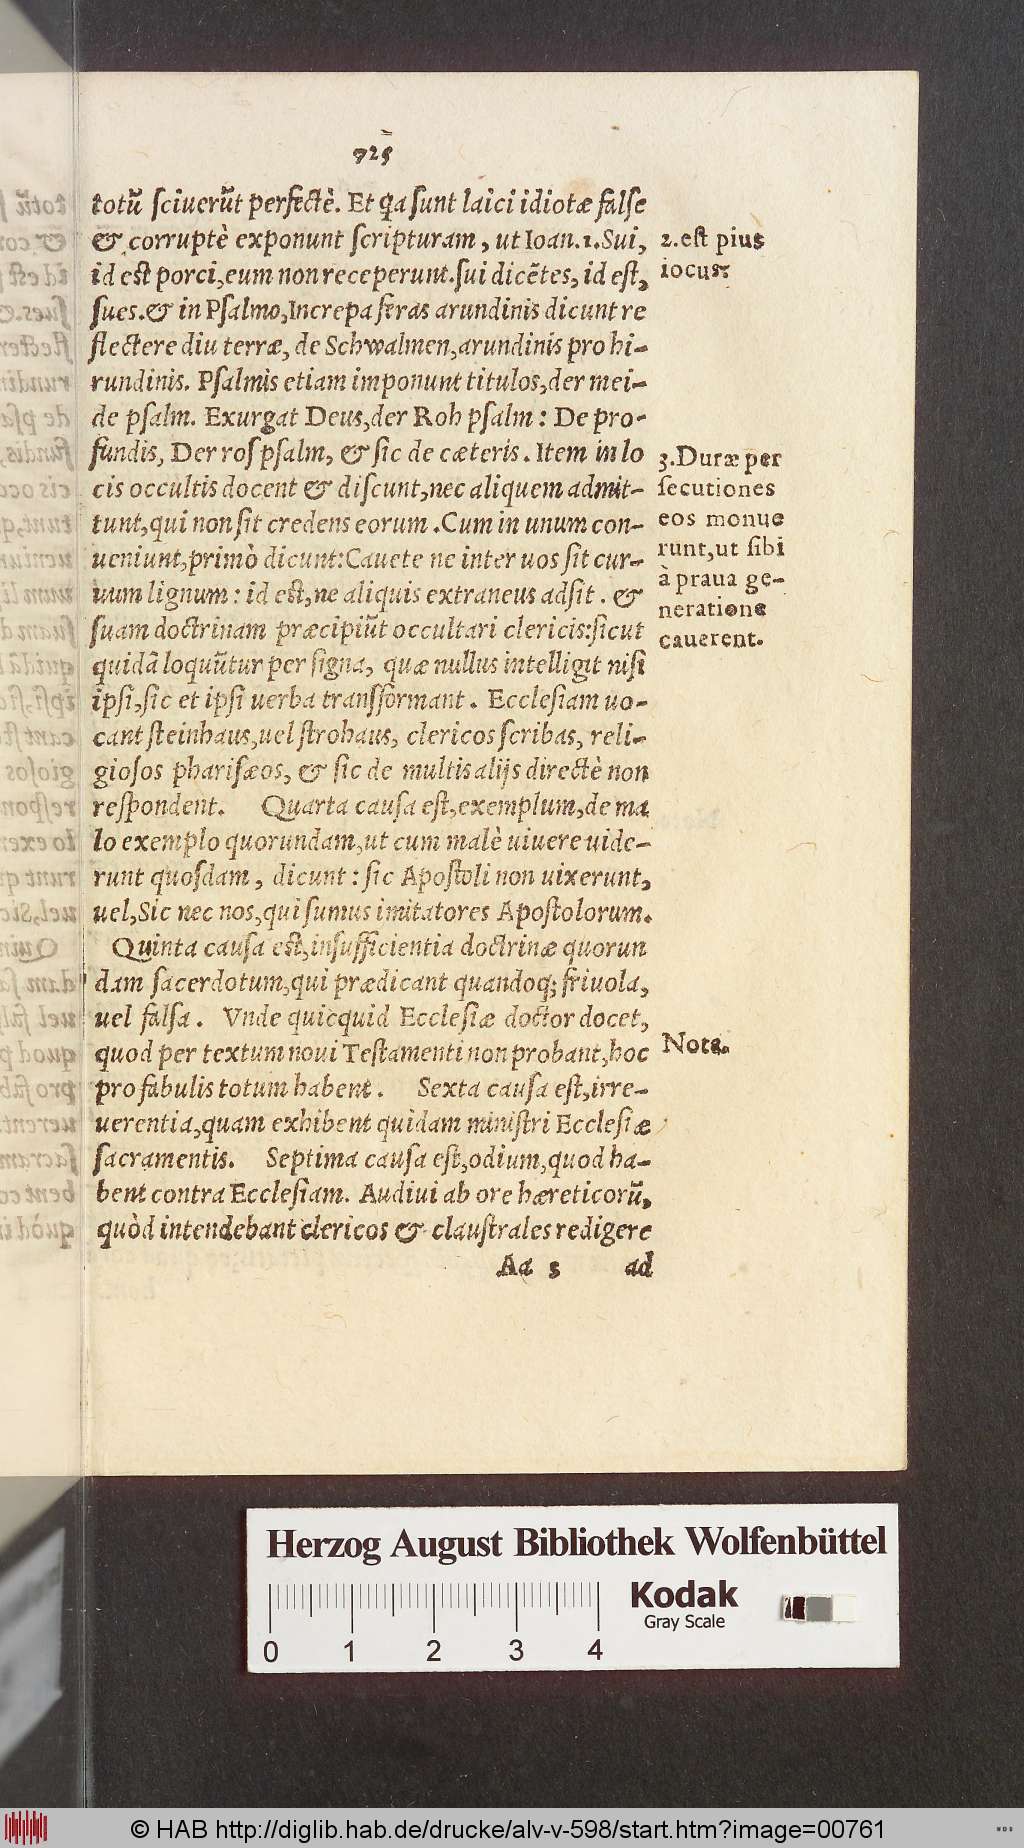 725
totū ſciuerūt perfectè. Et q̃a ſunt laici idiotæ falſe
& corruptè exponunt ſcripturam, ut Ioan.1.Sui,
id eſt porci,eum non receperunt.ſui dicētes, id eſt,
ſues.& in Pſalmo,Increpa feras arundinis dicunt re
flectere diu terræ, de Schwalmen,arundinis pro hi-
rundinis. Pſalmis etiam imponunt titulos,der mei-
de pſalm. Exurgat Deus,der Roh pſalm: De pro-
fundis, Der roſpſalm, & ſic de cæteris. Item in lo
cis occultis docent & diſcunt,nec aliquem admit-
tunt,qui non ſit credens eorum. Cum in unum con-
ueniunt,primò dicunt:Cauete ne inter uos ſit cur-
uum lignum: id eſt,ne aliquis extraneus adſit. &
ſuam doctrinam præcipiūt occultari clericis:ſicut
quidā loquūtur per ſigna, quæ nullus intelligit niſi
ipſi,ſic et ipſi uerba transformant. Eccleſiam uo-
cant ſteinhaus,uel ſtrohaus, clericos ſcribas, reli-
gioſos phariſæos, & ſic de multis alijs directè non
reſpondent. Quarta cauſa eſt,exemplum,de ma
lo exemplo quorundam,ut cum malè uiuere uide-
runt quoſdam, dicunt: ſic Apoſtoli non uixerunt,
uel,Sic nec nos,qui ſumus imitatores Apoſtolorum.
Quinta cauſa eſt,inſufficientia doctrinæ quorun
dam ſacerdotum,qui prædicant quandoq; friuola,
uel falſa. Vnde quicquid Eccleſiæ doctor docet,
quod per textum noui Teſtamenti non probant,hoc
pro fabulis totum habent. Sexta cauſa eſt,irre-
uerentia,quam exhibent quidam miniſtri Eccleſiæ
ſacramentis. Septima cauſa eſt,odium,quod ha-
bent contra Eccleſiam. Audiui ab ore hæreticorū,
quòd intendebant clericos & clauſtrales redigere
Aa 5 ad
2.eſt pius
iocus.
3.Duræ per
ſecutiones
eos monue
runt,ut ſibi
à praua ge-
neratione
cauerent.
Nota.
Herzog August Bibliothek Wolfenbüttel
Kodak
Gray Scale
0 1 2 3 4
© HAB http://diglib.hab.de/drucke/alv-v-598/start.htm?image=00761